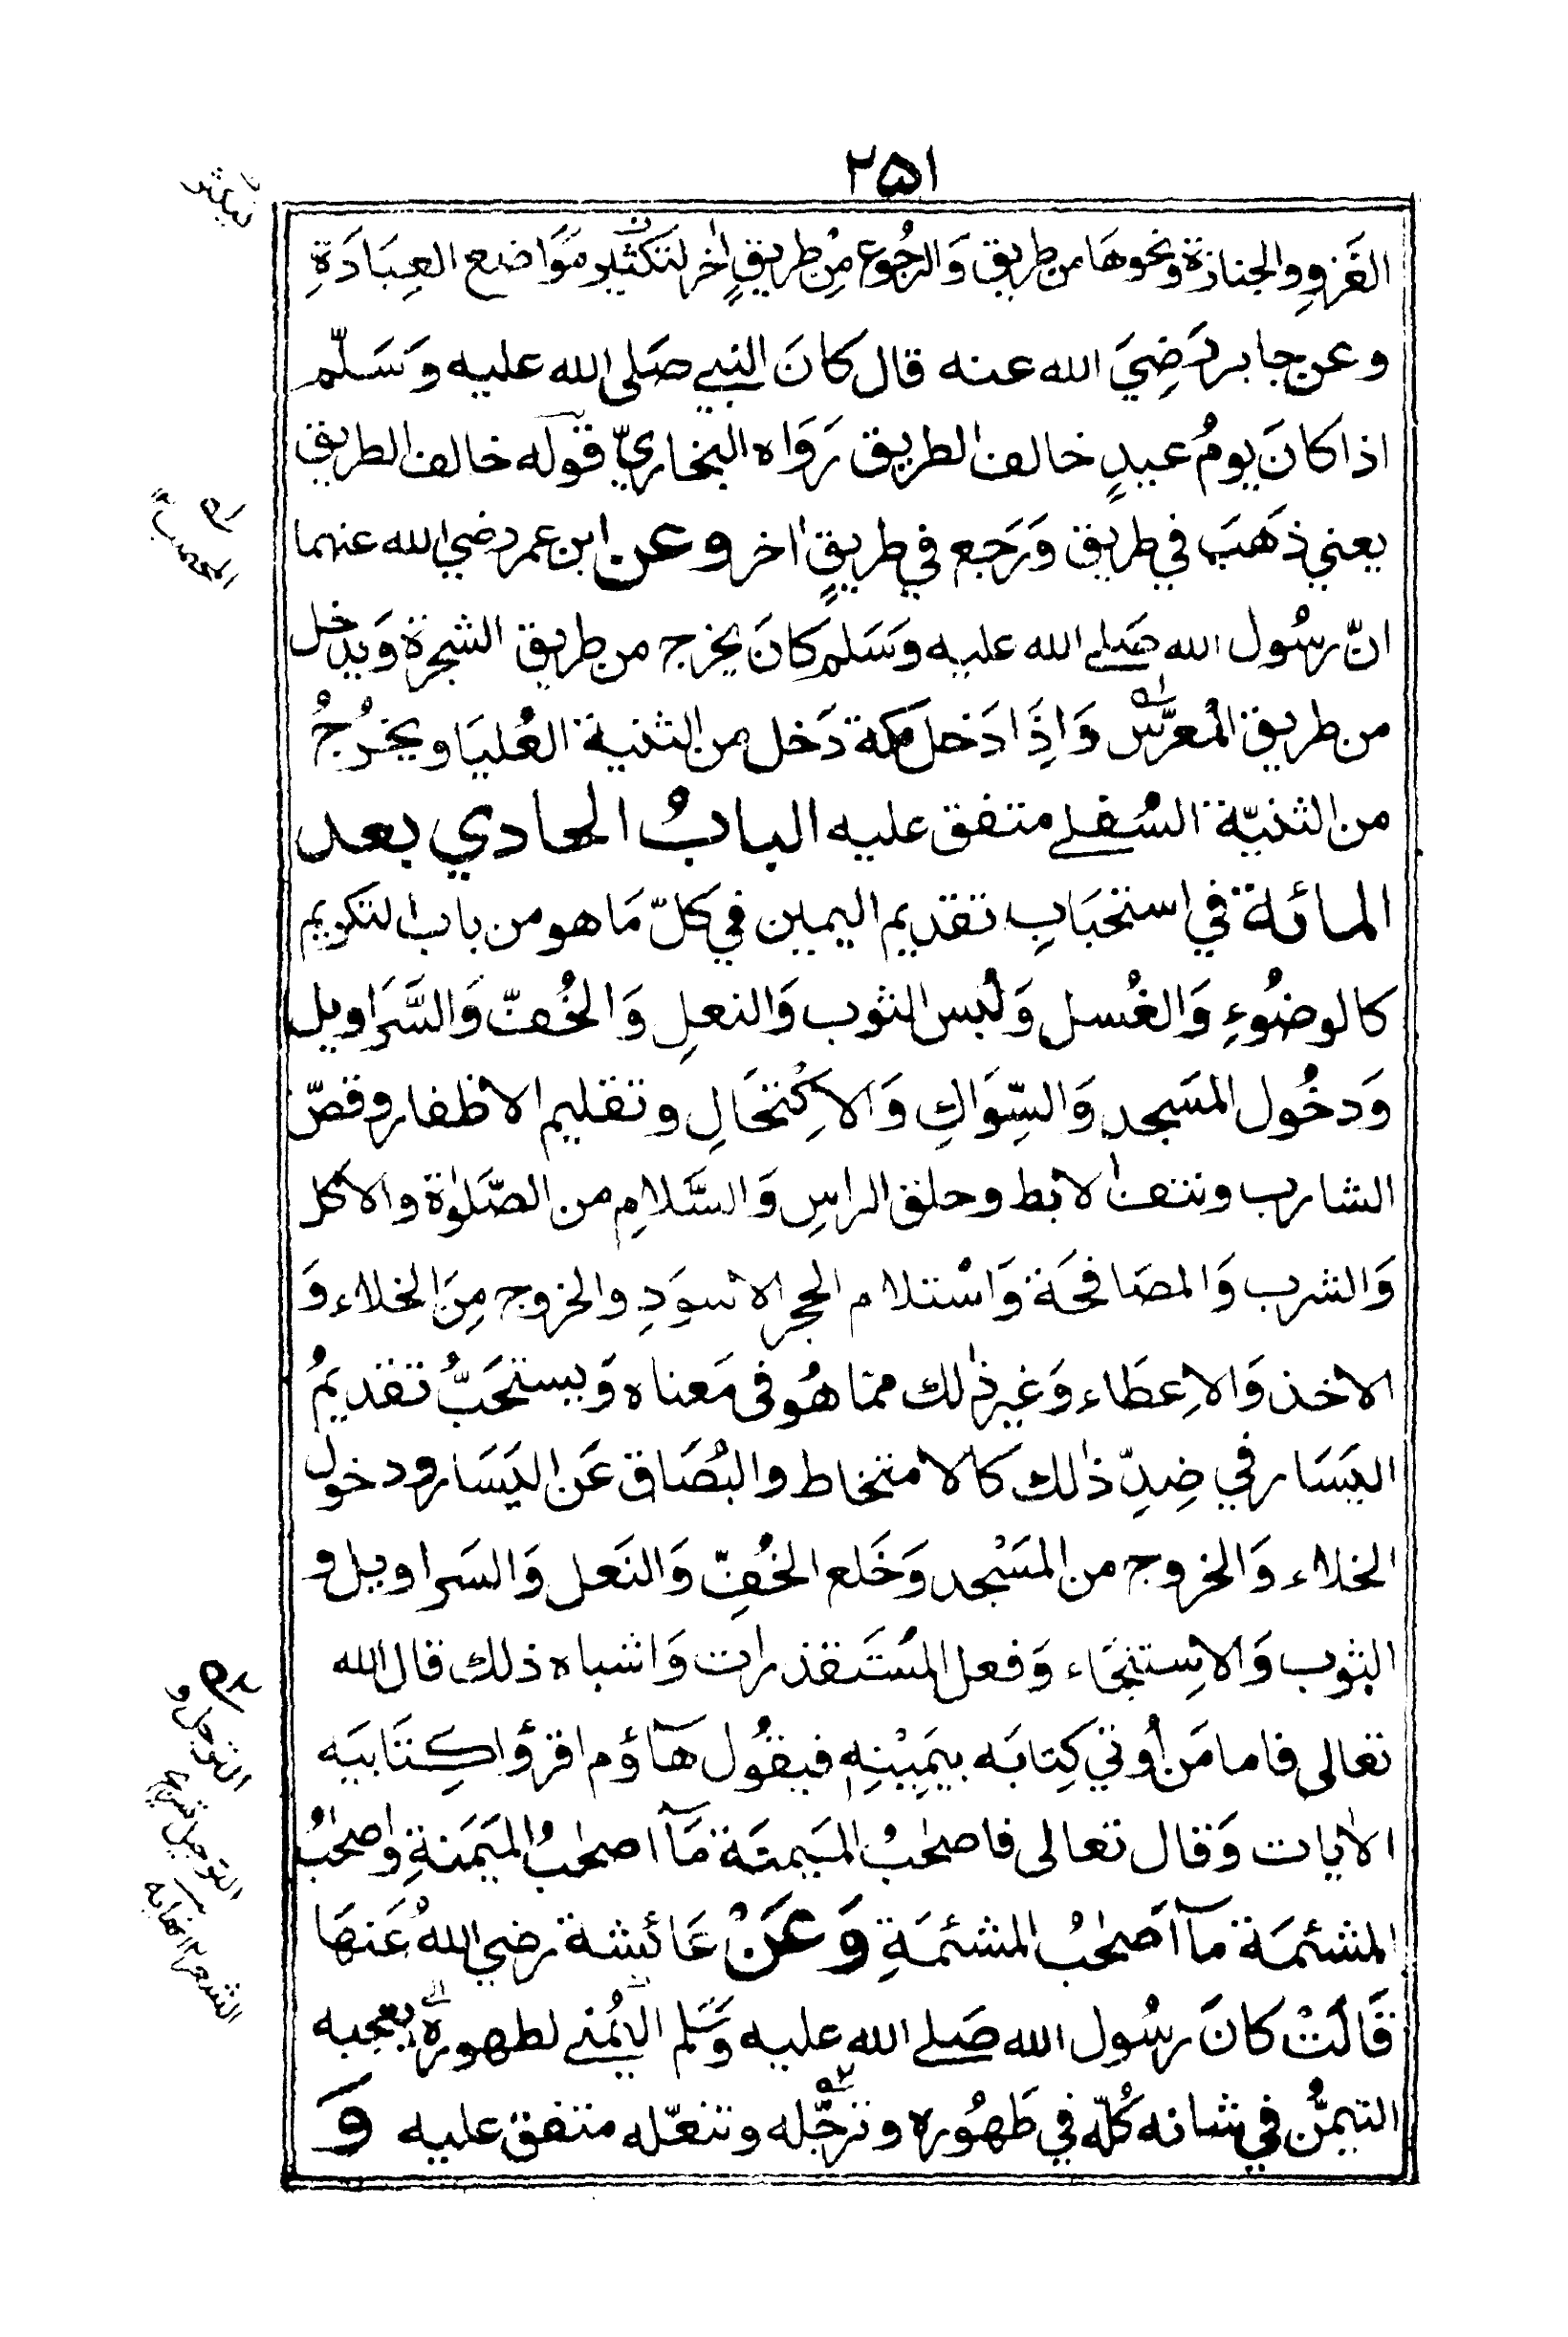 ۲۵۱
الغَزوِ والجنازة ونحوهَا من طريق وَالرجُوع مِن طريقٍ اٰخر لتكثير مَوَاضع العِبَادَةِ
وعن جابر رَضِيَ الله عنه قال كانَ النبي صَلى الله عليه وَسَلّم
اذا كانَ يومُ عيدٍ خالف الطريق رَوَاه البخاريّ قوله خالف الطريق
يعني ذهَبَ في طريق وَرَجع في طريقٍ اٰخر وعن ابن عمر رضي الله عنهما
انّ رسُول الله صَلے الله عليه وَسَلم كانَ يخرج من طريق الشجرة وَيدخل
من طريق المُعرَّس وَاِذَا دَخل مكة دَخل من الثنية العُليَا ويخرُجُ
من الثنيّة السُفلے متفق عليه البابُ الحادي بعد
المائة في استحبَابِ تقديم اليمين في كلّ مَا هو من باب التكريم
كالوضُوءِ وَالغُسل وَلُبس الثوب وَالنعلِ وَالخُفّ وَالسَّرَاويل
وَدخُول المَسَجد وَالسِّوَاكِ وَالاكِتحَالِ وتقليم الاظفار وقصّ
الشارب ونتف الابط وحلق الراسِ وَالسَّلامِ من الصَّلوٰة والاكل
وَالشرب وَالمصَافحَة وَاستلام الحجر الاسوَدِ والخروج مِنَ الخلاء وَ
الاخذ وَالاِعطَاء وَغير ذٰلك ممّا هُو فى مَعناه وَيستحَبُّ تقديمُ
اليَسَار في ضِدِّ ذٰلك كالامتخاط والبُصَاق عَن اليَسَار ودخول
الخلاء وَالخروج من المَسْجد وَخَلع الخُفِّ وَالنَعل وَالسَراويل و
الثوب وَالاِستنجَاء وَفعل المُستَقذرات وَاشباه ذلك قال الله
تعالى فاما مَن اُوتي كِتابَه بيَمِيْنِهٖ فيقُول هآؤم اقرؤا كِتَابيَه
الاٰيات وَقال تعالى فاصحٰبُ المَيمَنَة مَآ اصحٰبُ المَيَمَنةِ وَاصحٰبُ
المشئمَة مآ اَصحٰبُ المشئمَةِ وَعَنْ عَائشة رضي اللهُ عَنهَا
قَالَتْ كانَ رسُول الله صَلے الله عليه وَسَلم اليُمنے لطهوره يعجبه
التيمُّن في شانه كُلّه في طَهُوره وترجّله وتنعّله متفق عليه وَ